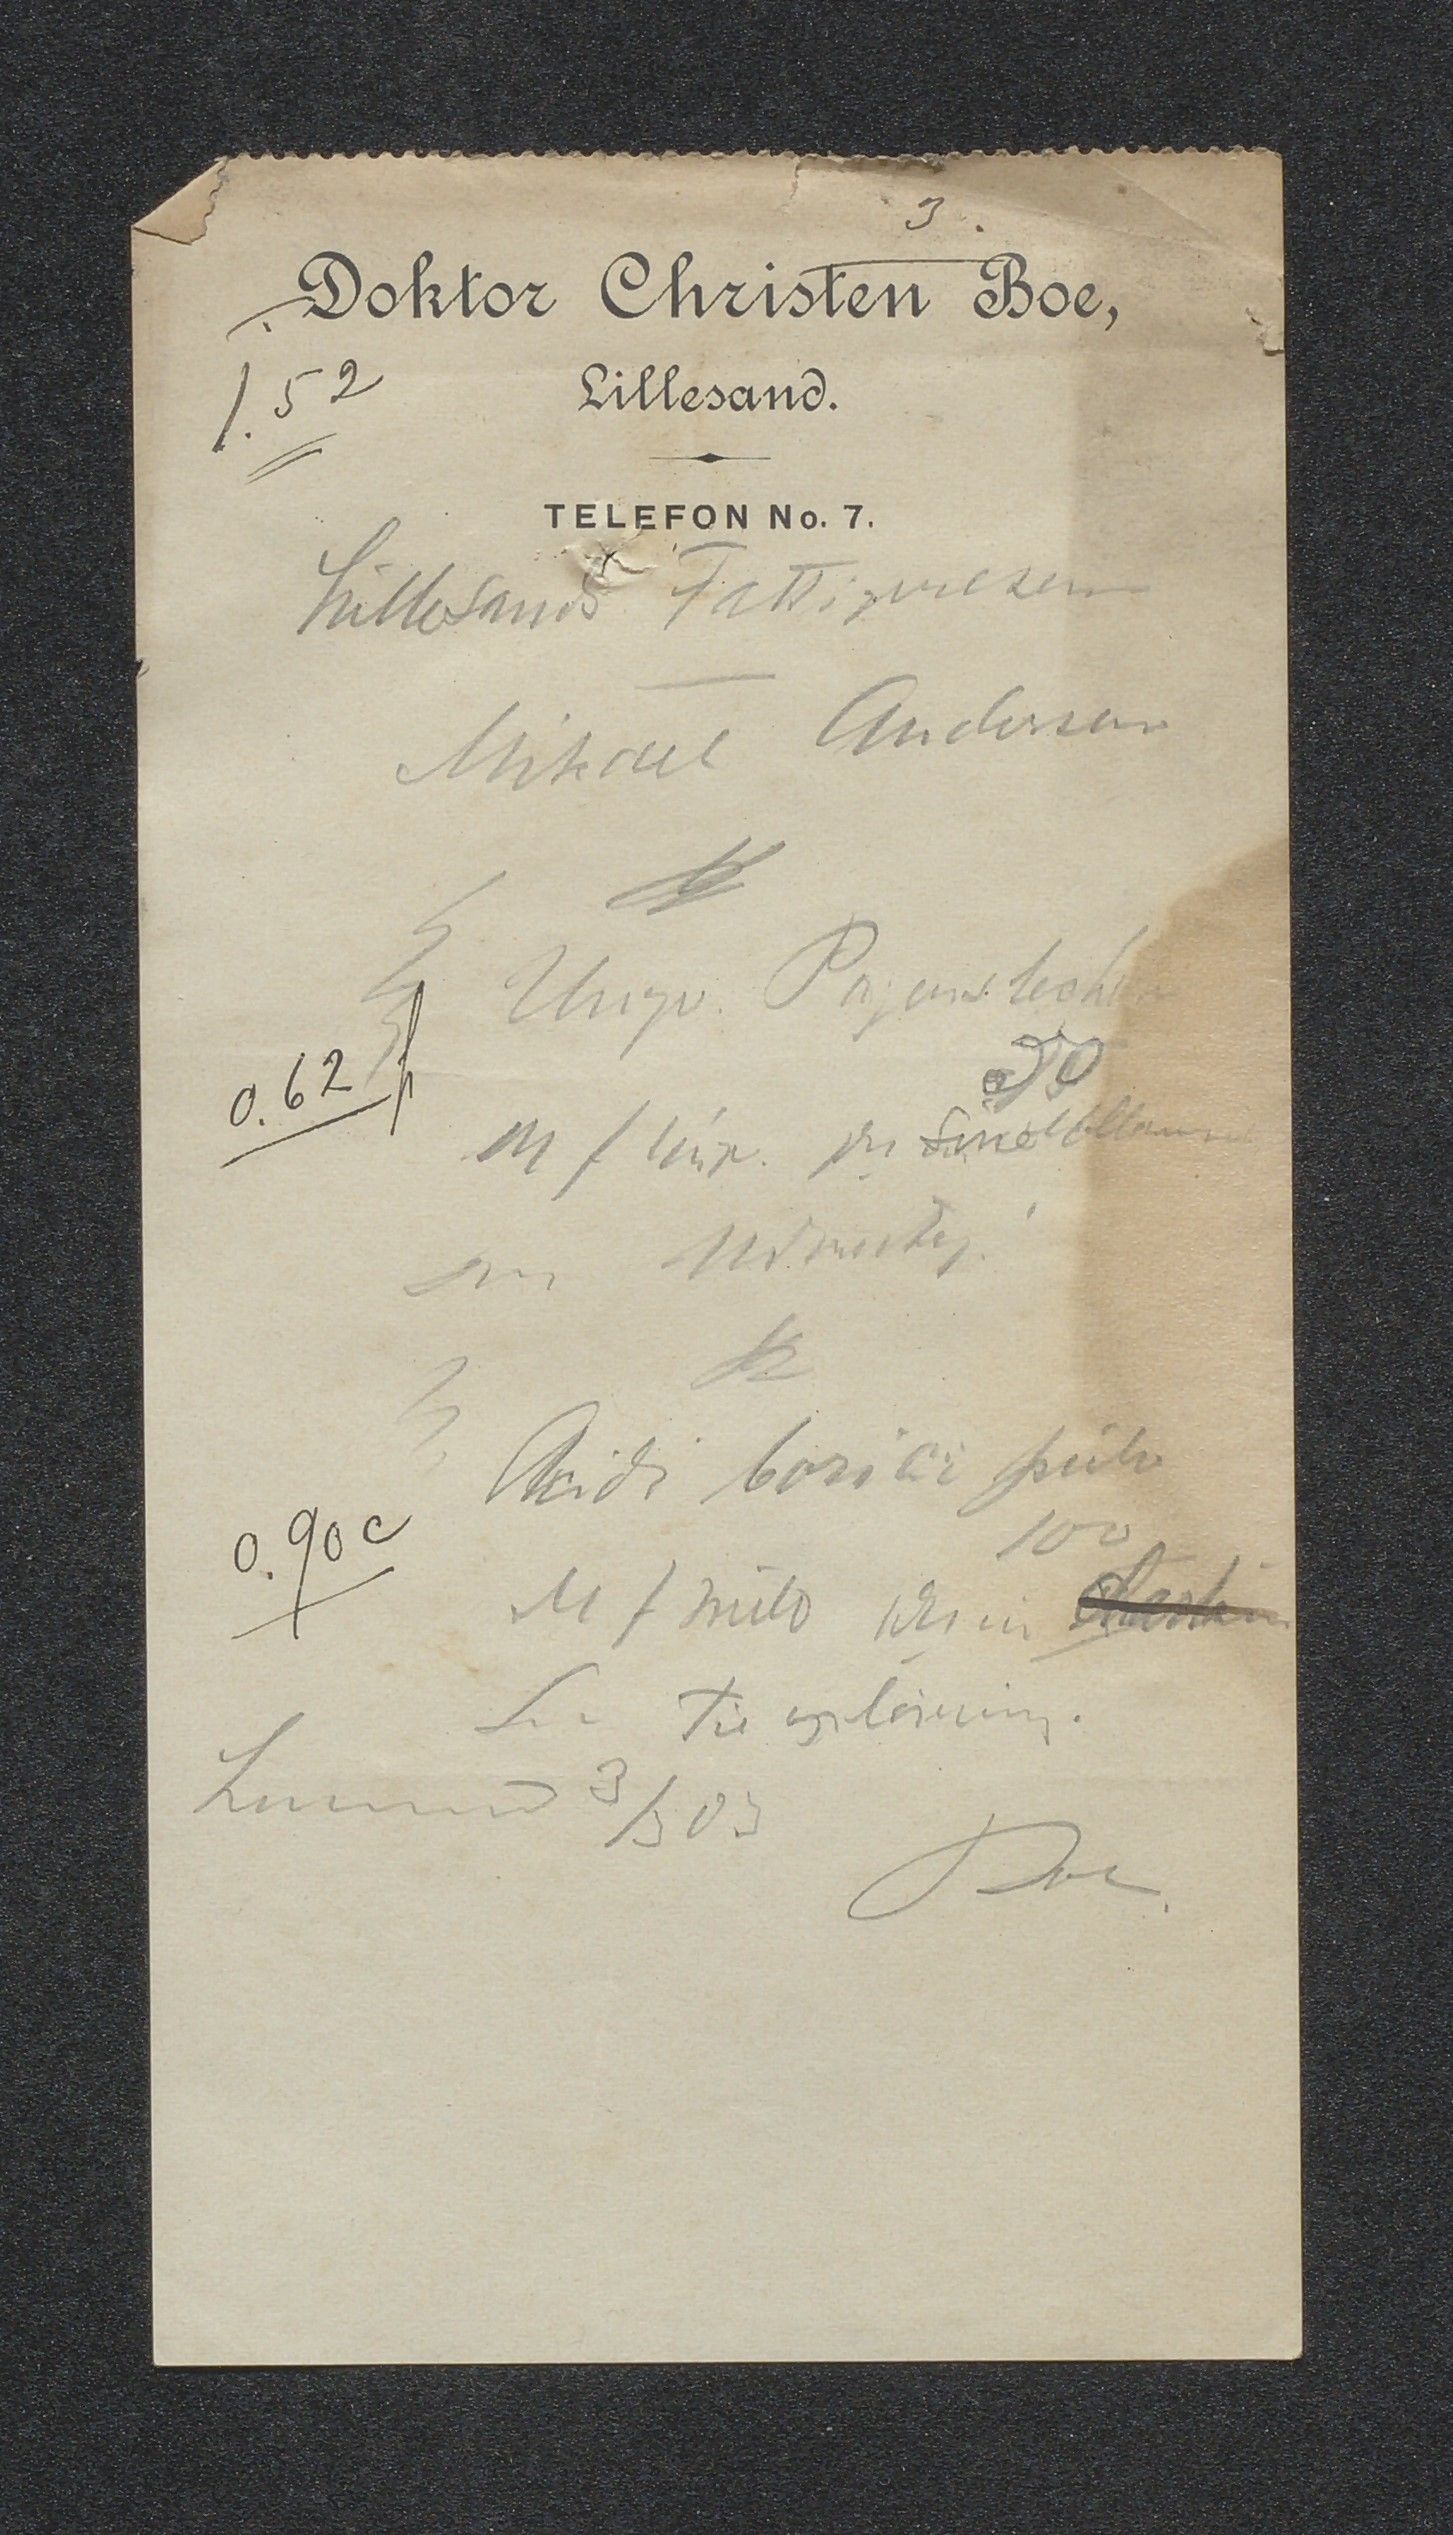 3.
Doktor Christen Boe,
1.52
Lillesand.
TELEFON No. 7.
Lillesands Fattigvesen
Mikael Andersen
Ungv. Pagenstecher
0.62
50
M f
Udvortes.
Acidi borici pulv
100
0.90 c
M f
Til opløsning.
3/3 03
Boe.